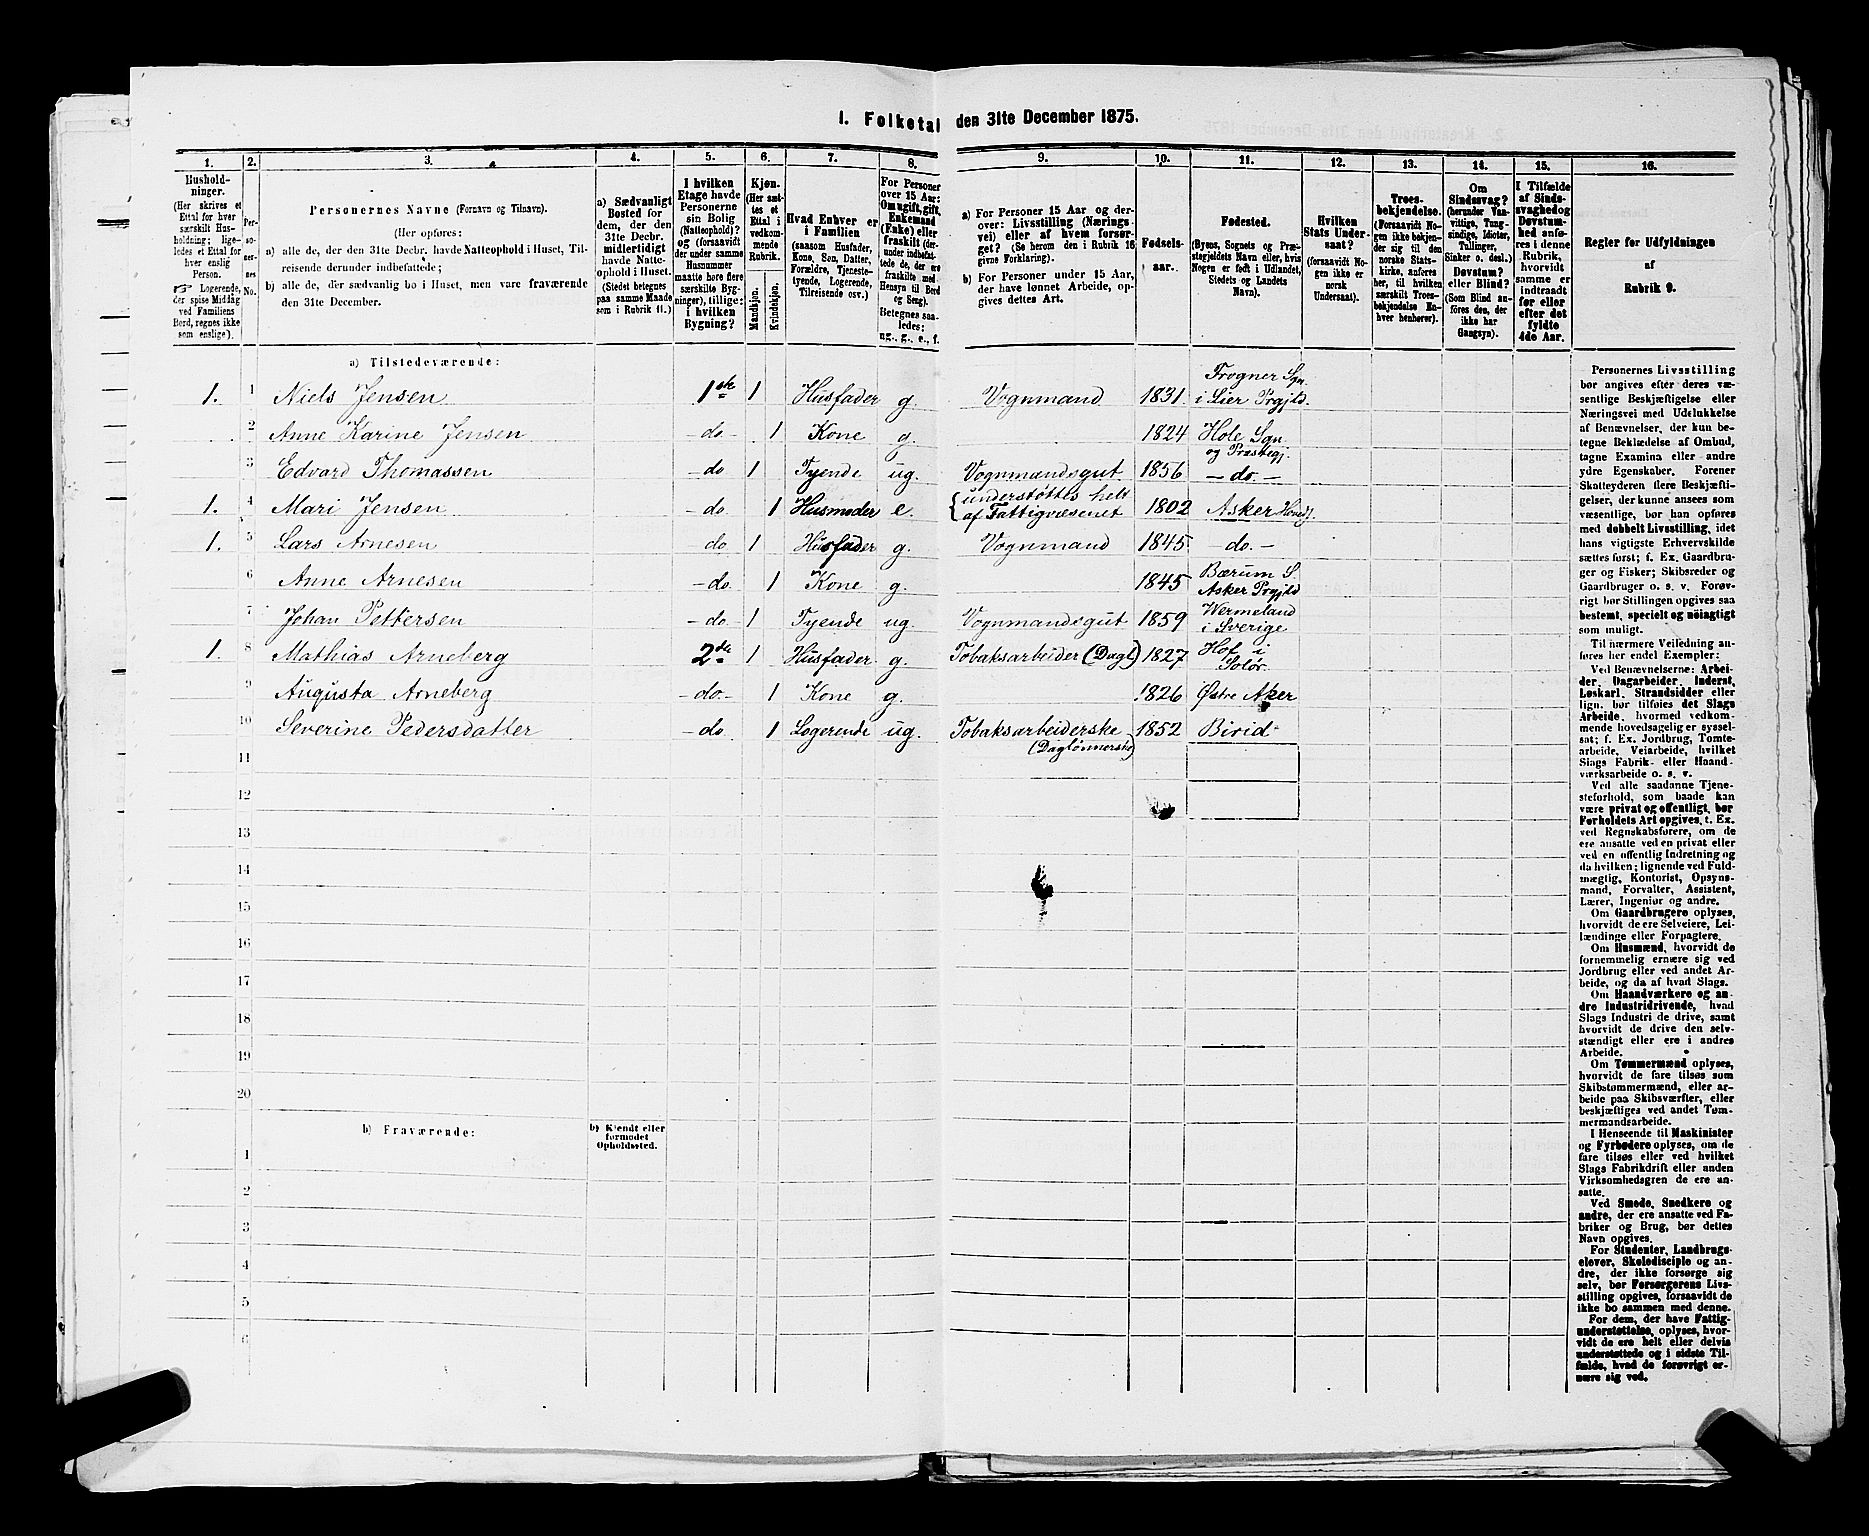 1. Folketal den 31te December 1875.
1.
Husholdninger.
(Her skrives et
Ettal for hver
særskilt Husholdning;
ligeledes et Ettal for
hver enslig
Person.
☞ Logerende,
der spise Middag
ved Familiens
Bord, regnes ikke
som enslige).
2.
Personernes
No.
3.
Personernes Navne (Fornavn og Tilnavn).
(Her opføres:
a) alle de, der den 31te Decbr. havde Natteophold i Huset, Tilreisende derunder indbefattede;
b) alle de, der sædvanlig bo i Huset, men vare fraværende
den 31te December.
4.
a) Sædvanligt
Bosted for
dem, der den
31te Decbr.
midlertidigt
havde Natteophold i Huset.
(Stedet betegnes
paa samme Maade
som i Rubrik 11.)
5.
I hvilken
Etage havde
Personerne
sin Bolig
(Natteophold)?
og (forsaavidt
der under samme
Husnummer
maatte høre flere
særskilte Bygninger), tillige:
i hvilken
Bygning?
6.
Kjøn.
(Her sættes et
Ettal i
vedkommende
Rubrik.
Mandkjøn.
Kvindekjøn.
7.
Hvad Enhver er
i Familien
(saasom Husfader,
Kone, Søn, Datter,
Forældre, Tjenestetyende, Logerende,
Tilreisende osv.)
8.
For Personer
over 15 Aar:
Om ugift, gift,
Enkemand
(Enke) eller
fraskilt (derunder indbefattede de, der ere
fraskilte med
Hensyn til Bord
og Seng).
Betegnes saaledes:
ug., g., e., f.
9.
a) For Personer 15 Aar og derover: Livsstilling (Næringsvei) eller af hvem forsørget? (Se herom den i Rubrik 16
givne Forklaring).
b) For Personer under 15 Aar,
der have lønnet Arbeide, opgives dettes Art.
10.
Fødselsaar.
11.
Fødested.
(Byens, Sognets og Præstegjeldets Navn eller, hvis
Nogen er født i Udlandet,
Stedets og Landets
Navn).
12.
Hvilken
Stats Undersaat?
(forsaavidt Nogen ikke er
norsk
Undersaat).
13.
Troesbekjendelse.
(Forsaavidt Nogen ikke bekjender sig til den
norske Statskirke, anføres
her, til hvilken
særskilt Troesbekjendelse Enhver henhører).
14.
Om
Sindssvag?
(herunder Vanvittige, Tungsindige, Idioter,
Tullinger,
Sinker o. desl.)
Døvstum?
eller Blind?
(Som Blind anføres den, der
ikke har
Gangsyn).
15.
I Tilfælde
af Sindssvaghed og
Døvstumhed anføres i denne
Rubrik,
hvorvidt
samme er
indtraadt
før eller
efter det
fyldte
4de Aar.
16.
Regler for Udfyldningen
af
Rubrik 9.
a) Tilstedeværende:
1. 1 Niels Jensen 1ste 1 Husfader g. Vognmand 1831. Frogner Sgn. i Lier Prgjld.
2 Anne Karine Jensen - do - 1 Kone g. 1824 Hole Sgn. og Præstegj.
3 Edvard Thomassen - do 1 Tyende ug. Vognmandsgut 1856 - do. -
1. 4 Mari Jensen - do. 1 Husmoder e. understøttes helt af Fattigvæsenet 1802 Asker
1. 5 Lars Arnesen do. 1 Husfader g. Vognmand 1845 - do. -
6 Anne Arnesen - do. 1 Kone g. 1845 Bærum S. Asker Prgjld
7 Johan Pettersen - do. 1 Tyende ug. Vognmandsgut 1859 Wermeland i Sverige
1. 8 Mathias Arneberg 2de 1 Husfader g. Tobaksarbeider (Dagl) 1827 Hof i Solør.
9 Augusta Arneberg - do. - 1 Kone g. 1826 Østre Aker
10 Severine Pedersdatter - do. 1 Logerende ug. Tobaksarbeiderske (Daglønnerske) 1852 Birid
11
12
13
14
15
16
17
18
19
20
b) Fraværende:
b) Kjendt eller
formodet
Opholdssted.
1
2
3
4
5
6
Personernes Livsstilling
bør angives efter deres væsentlige Beskjæftigelse eller
Næringsvei med Udelukkelse
af Benævnelser, der kun betegne Beklædelse af Ombud,
tagne Examina eller andre
ydre Egenskaber. Forener
Skatteyderen flere Beskjæftigelser, der kunne ansees som
væsentlige, bør han opføres
med dobbelt Livsstilling, idet
hans vigtigste Erhvervskilde
sættes først; f. Ex. Gaardbruger og Fisker; Skibsreder og
Gaardbruger o. s. v. Forøvrigt bør Stillingen opgives saa
bestemt, specielt og nøiagtigt
som muligt.
Til nærmere Veiledning anføres her endel Exempler:
Ved Benævnelserne: Arbeider, Dagarbeider, Inderst,
Løskarl, Strandsidder eller
lign. bør tilføies det Slags
Arbeide, hvormed vedkommende hovedsagelig er sysselsat; f. Ex. Jordbrug, Tomtearbeide, Veiarbeide, hvilket
Slags Fabrik- eller Haandværksarbeide o. s. v.
Ved alle saadanne Tjenesteforhold, som baade kan
være privat og offentligt, bør
Forholdets Art opgives, t. Ex.
ved Regnskabsførere, om de
ere ansatte ved en privat eller
ved en offentlig Indretning og
da hvilken; lignende ved Fuldmægtig, Kontorist, Opsynsmand, Forvalter, Assistent,
Lærer, Ingeniør og andre.
Om Gaardbrugere oplyses,
hvorvidt de ere Selveiere, Leilændinge eller Forpagtere.
Om Husmænd, hvorvidt de
fornemmelig ernære sig ved
Jordbrug eller ved andet Arbeide, og da af hvad Slags.
Om Haandværkere og andre Industridrivende, hvad
Slags Industri de drive, samt
hvorvidt de drive den selvstændigt eller ere i andres
Arbeide.
Om Tømmermænd oplyses,
hvorvidt de fare tilsøs som
Skibstømmermænd, eller arbeide paa Skibsværfter, eller
beskjæftiges ved andet Tømmermandsarbeide.
I Henseende til Maskinister
og Fyrbødere oplyses, om de
fare tilsøs eller ved hvilket
Slags Fabrikdrift eller anden
Virksomhedsgren de ere ansatte.
Ved Smede, Snedkere og
andre, der ere ansatte ved Fabriker og Brug, bør dettes
Navn opgives.
For Studenter, Landbrugselever, Skoledisciple og andre, der ikke forsørge sig
selv, bør Forsørgerens Livsstilling opgives, forsaavidt de
ikke bo sammen med denne.
For dem, der have Fattigunderstøttelse, oplyses, hvorvidt de ere helt eller delvis
understøttede og i sidste Tilfælde, hvad de forøvrigt ernære sig ved.